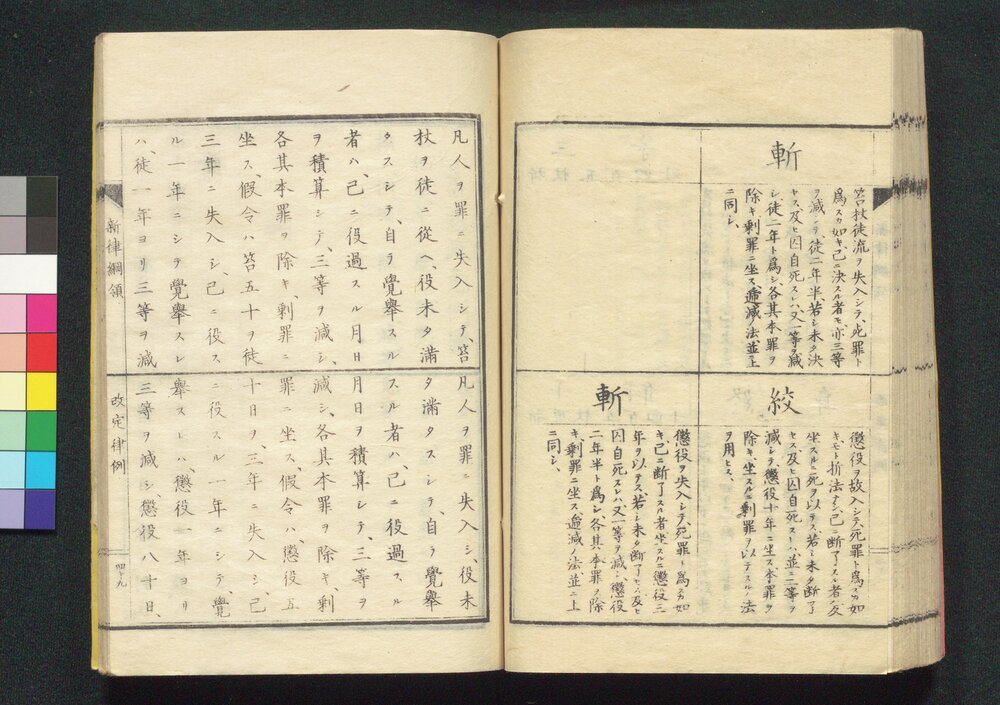 斬
笞杖徒流ヲ失入シテ、此罪ト
爲スカ如キ已ニ決スル者モ亦三等
ヲ減シテ徒二年半、若シ未タ決
セス、及ヒ囚自死スレハ、又一等ヲ減
シ徒二年ト爲シ、各其本罪ヲ
除キ剩罪ニ坐ス、遞減ノ法、並ニ上
ニ同シ、
絞
懲役ヲ故入シテ、死罪ト爲スカ如
キモト折法ナシ、已ニ断了スル者ハ反
坐スルニ死ヲ以テス、若シ未タ断了
セス、及ヒ囚自死スレハ、並ニ一等ヲ
減シテ、懲役十年ニ坐ス、本罪ヲ
除キ、坐スルニ剩罪ヲ以テスルノ法
ヲ用ヒス、
斬
懲役ヲ失入シテ、死罪ト爲スカ如
キ、已ニ断了スル者坐スルニ懲役三
年ヲ以テス、若シ未タ断了セス、及ヒ
囚自死スレハ、又一等ヲ減シ、懲役
二年半ト爲シ、各其本罪ヲ除
キ、剩罪ニ坐ス、遞減ノ法、並ニ上
ニ同シ、
凡人ヲ罪ニ失入シテ、笞
杖ヲ徒ニ從ヘ、役未タ滿
タスシテ、自ラ覺舉スル
者ハ、已ニ役過スル月日
ヲ積算シテ、三等ヲ減シ、
各其本罪ヲ除キ、剩罪ニ
坐ス、假令ハ笞五十ヲ徒
三年ニ失入シ、已ニ役ス
ル一年ニシテ覺舉スレ
ハ、徒一年ヨリ三等ヲ減
凡人ヲ罪ニ失入シ、役未
タ滿タスシテ、自ラ覺舉
スル者ハ、已ニ役過スル
月日ヲ積算シテ、三等ヲ
減シ、各其本罪ヲ除キ、剩
罪ニ坐ス、假令ハ、懲役五
十日ヲ、三年ニ失入シ、已
ニ役スル一年ニシテ、覺
舉スレハ、懲役一年ヨリ
三等ヲ減シ、懲役八十日、
新律綱領
改定律例
四十九